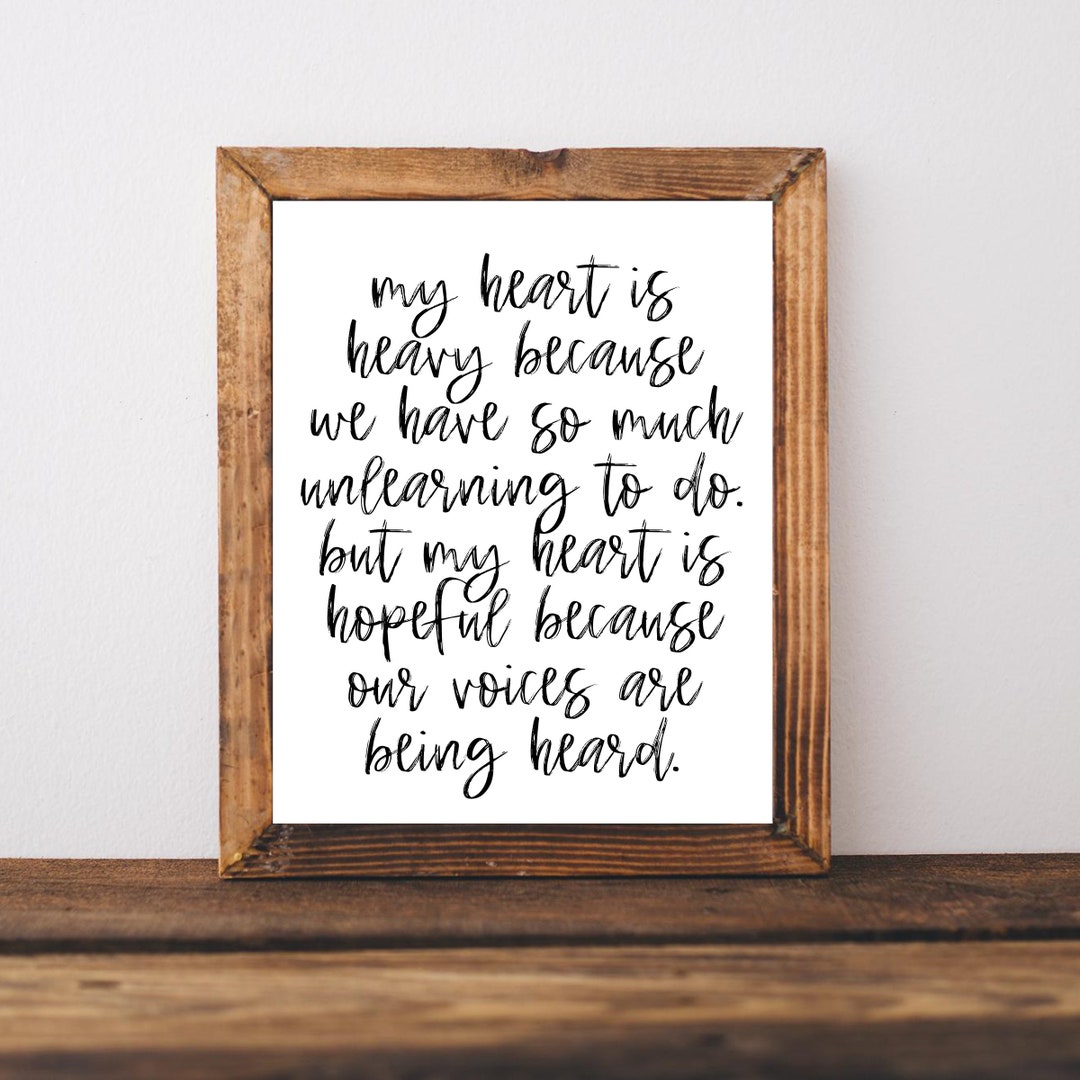 my heart is
heavy because
we have so much
unlearning to do.
but my heart is
hopeful because
our voices are
being heard.